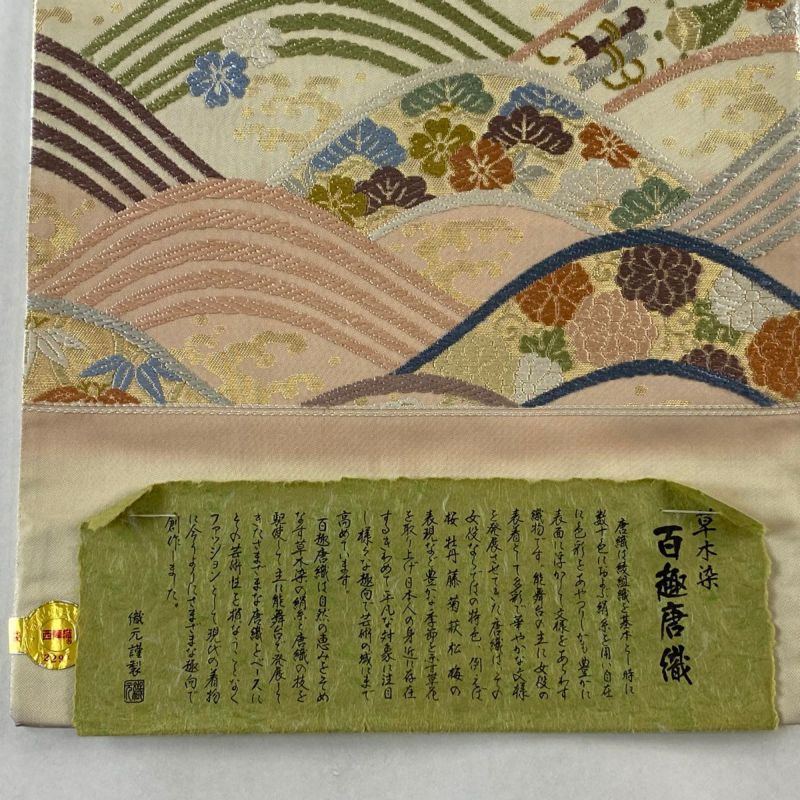 草木染
百趣唐織
唐織は綾組織を基本とし時に
数十色に及ぶ絹糸を用い自在
に色彩をあやつりしかも豊かに
表面に浮かして文様をあらわす
織物です。能舞台の主に女役の
表着として多彩で華やかな文様
を発展させてきた唐織は、その
女役ならではの特色 例えば
桜 牡丹 藤 菊 萩 松 梅の
表現など豊かな季節を示す草花
を取り上げ日本人の身近に存在
するきわめて平凡な対象に注目
し様々な趣向で芸術の域にまで
高めています。
百趣唐織は自然の恵みをそめ
なす草木染の絹糸と唐織の技を
駆使して主に能舞台で発展して
きたさまざまな唐織をベースに
その芸術性を損なうことなく
ファッションとして現代の着物
に合うようにさまざまな趣向で
創作しました。
織元謹製
西陣織
229